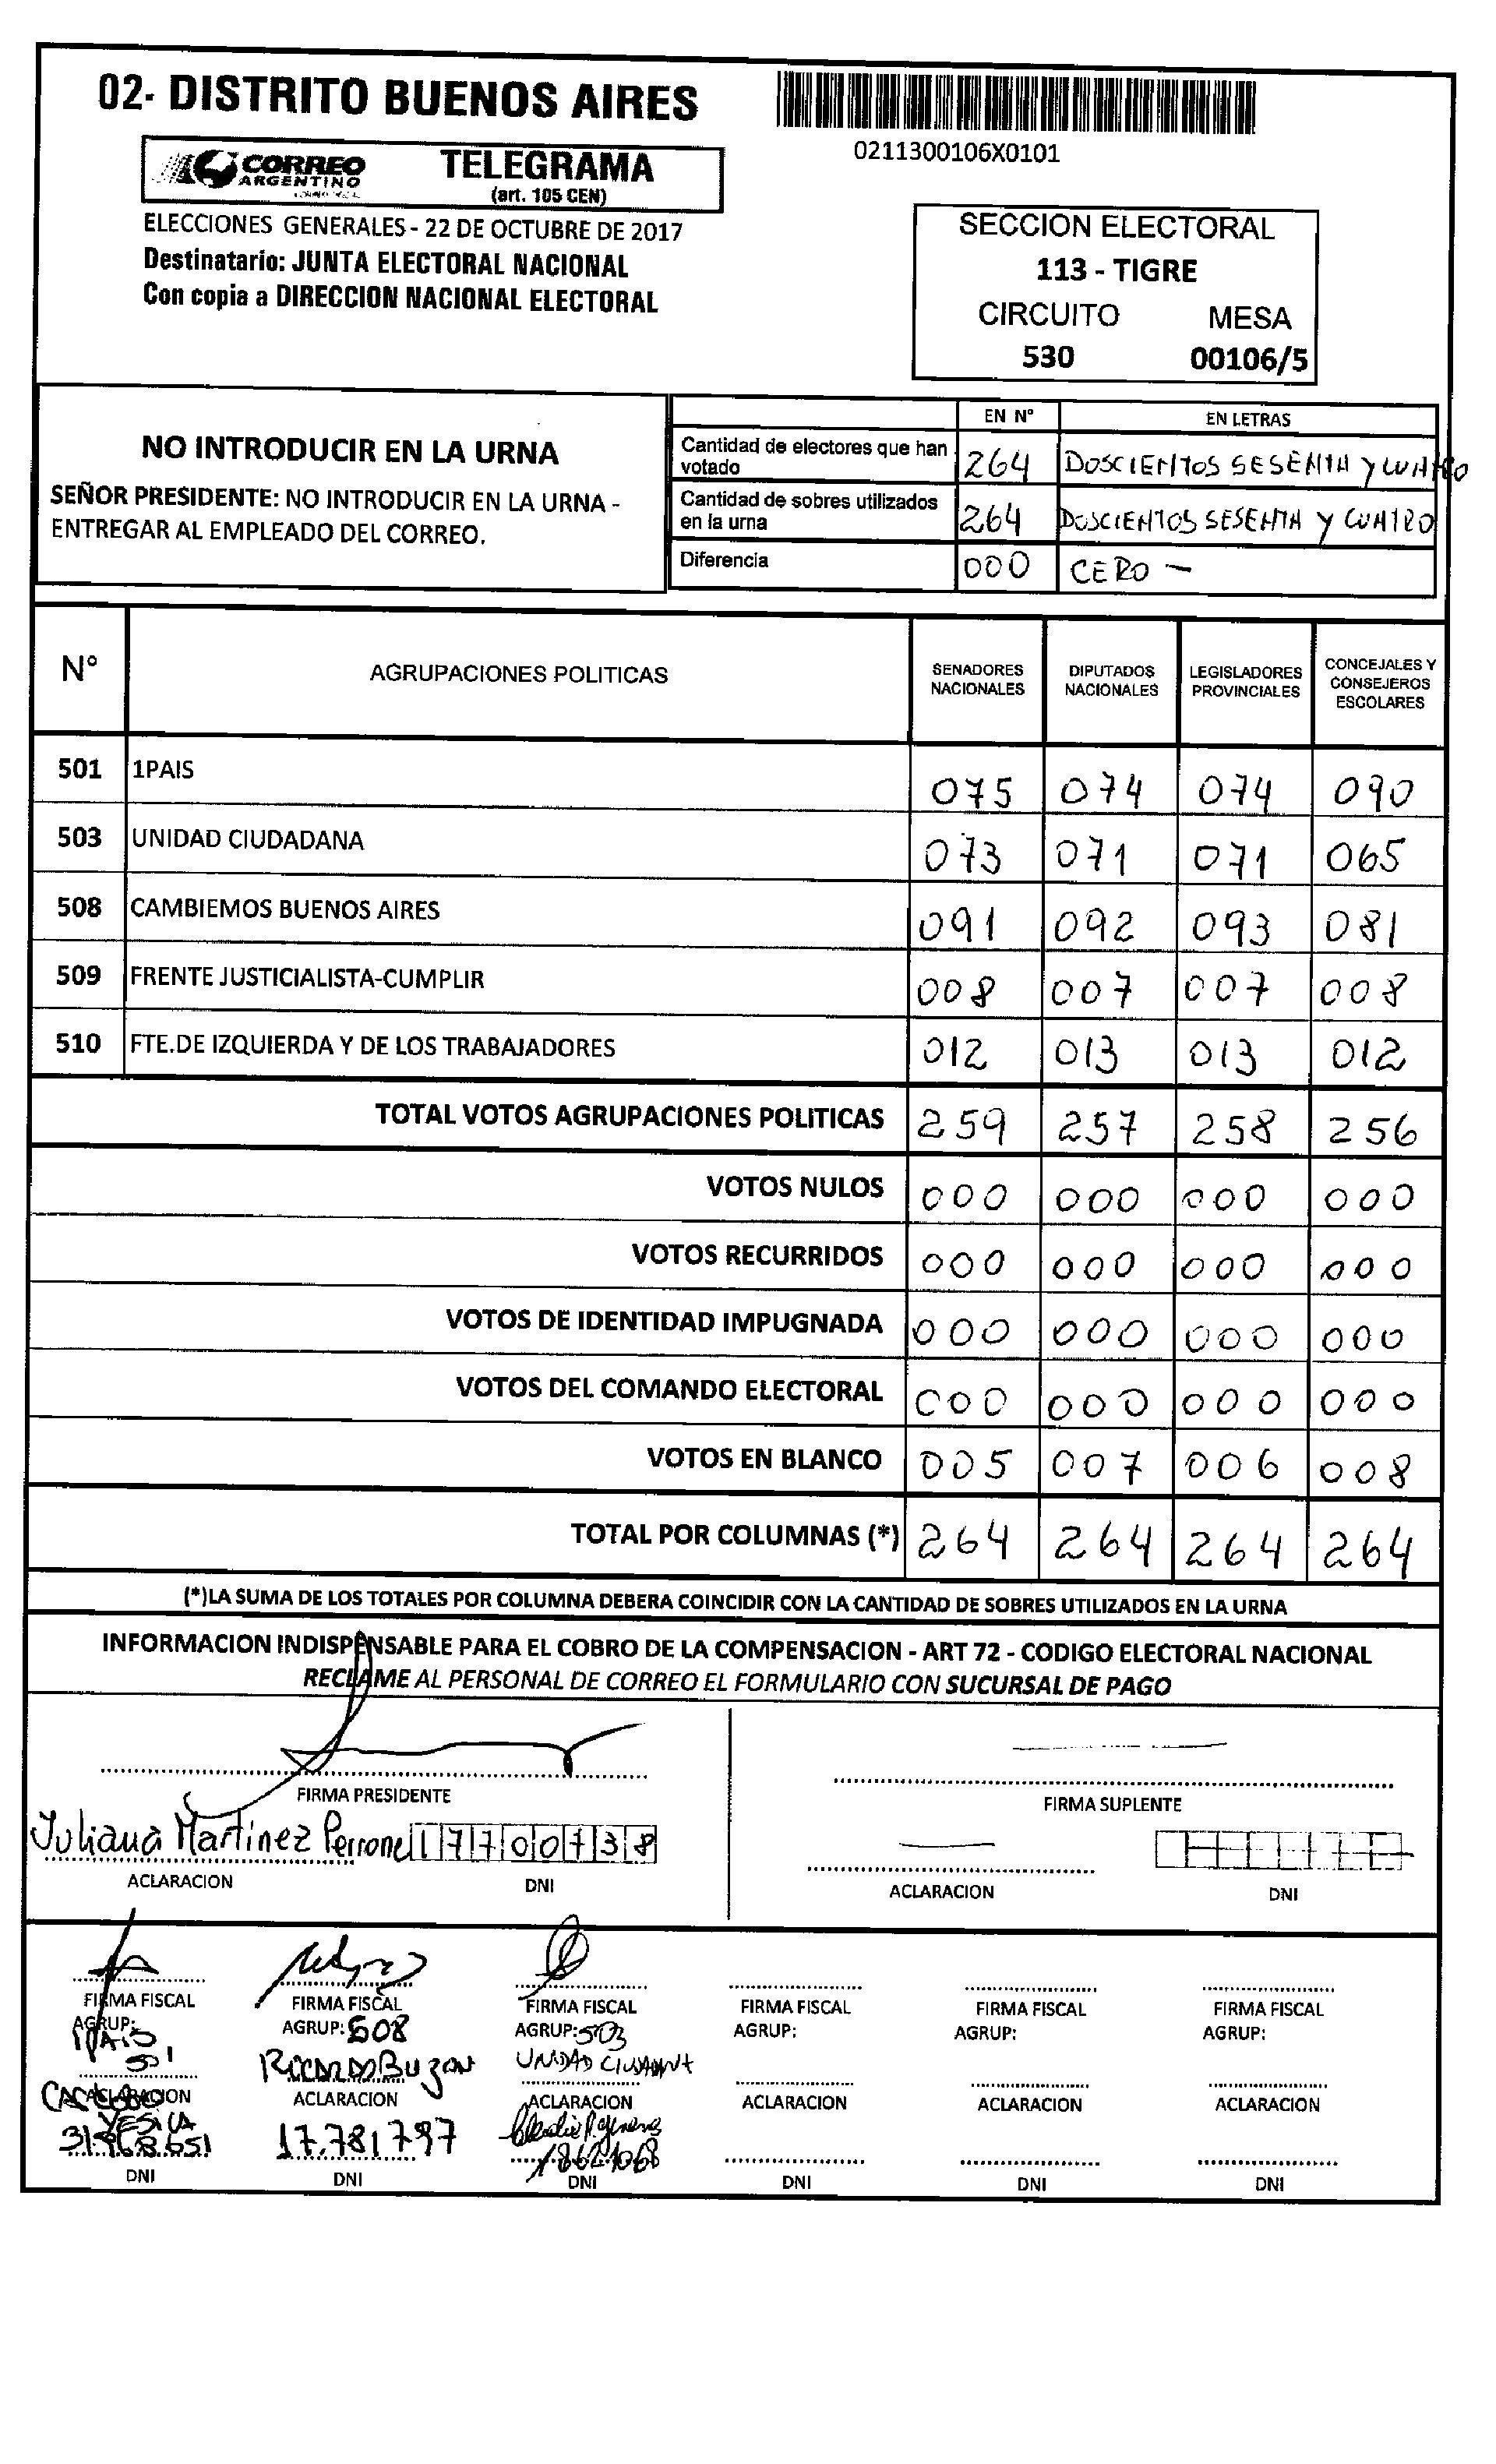 02- DISTRITO BUENOS AIRES
0211300106X0101
CORREO ARGENTINO
TELEGRAMA
(art. 105 CEN)
ELECCIONES GENERALES - 22 DE OCTUBRE DE 2017
Destinatario: JUNTA ELECTORAL NACIONAL
Con copia a DIRECCION NACIONAL ELECTORAL
SECCION ELECTORAL
113 - TIGRE
CIRCUITO MESA
530 00106/5
NO INTRODUCIR EN LA URNA
SEÑOR PRESIDENTE: NO INTRODUCIR EN LA URNA -
ENTREGAR AL EMPLEADO DEL CORREO.
EN N° EN LETRAS
Cantidad de electores que han votado 264 DOSCIENTOS SESENTA Y CUATRO
Cantidad de sobres utilizados en la urna 264 DOSCIENTOS SESENTA Y CUATRO
Diferencia 000 CERO -
N° AGRUPACIONES POLITICAS SENADORES NACIONALES DIPUTADOS NACIONALES LEGISLADORES PROVINCIALES CONCEJALES Y CONSEJEROS ESCOLARES
501 1PAIS 075 074 074 090
503 UNIDAD CIUDADANA 073 071 071 065
508 CAMBIEMOS BUENOS AIRES 091 092 093 081
509 FRENTE JUSTICIALISTA-CUMPLIR 008 007 007 008
510 FTE.DE IZQUIERDA Y DE LOS TRABAJADORES 012 013 013 012
TOTAL VOTOS AGRUPACIONES POLITICAS 259 257 258 256
VOTOS NULOS 000 000 000 000
VOTOS RECURRIDOS 000 000 000 000
VOTOS DE IDENTIDAD IMPUGNADA 000 000 000 000
VOTOS DEL COMANDO ELECTORAL 000 000 000 000
VOTOS EN BLANCO 005 007 006 008
TOTAL POR COLUMNAS (*) 264 264 264 264
(*)LA SUMA DE LOS TOTALES POR COLUMNA DEBERA COINCIDIR CON LA CANTIDAD DE SOBRES UTILIZADOS EN LA URNA
INFORMACION INDISPENSABLE PARA EL COBRO DE LA COMPENSACION - ART 72 - CODIGO ELECTORAL NACIONAL
RECLAME AL PERSONAL DE CORREO EL FORMULARIO CON SUCURSAL DE PAGO
FIRMA PRESIDENTE FIRMA SUPLENTE
Juliana Martinez Perrone 17700738
ACLARACION DNI ACLARACION DNI
FIRMA FISCAL FIRMA FISCAL FIRMA FISCAL FIRMA FISCAL FIRMA FISCAL FIRMA FISCAL
AGRUP: AGRUP: 508 AGRUP: 503 AGRUP: AGRUP: AGRUP:
1PAIS
501 RICARDO BUZON UNIDAD
ACLARACION ACLARACION ACLARACION ACLARACION ACLARACION ACLARACION
YESICA
17.781.797 18621068
DNI DNI DNI DNI DNI DNI